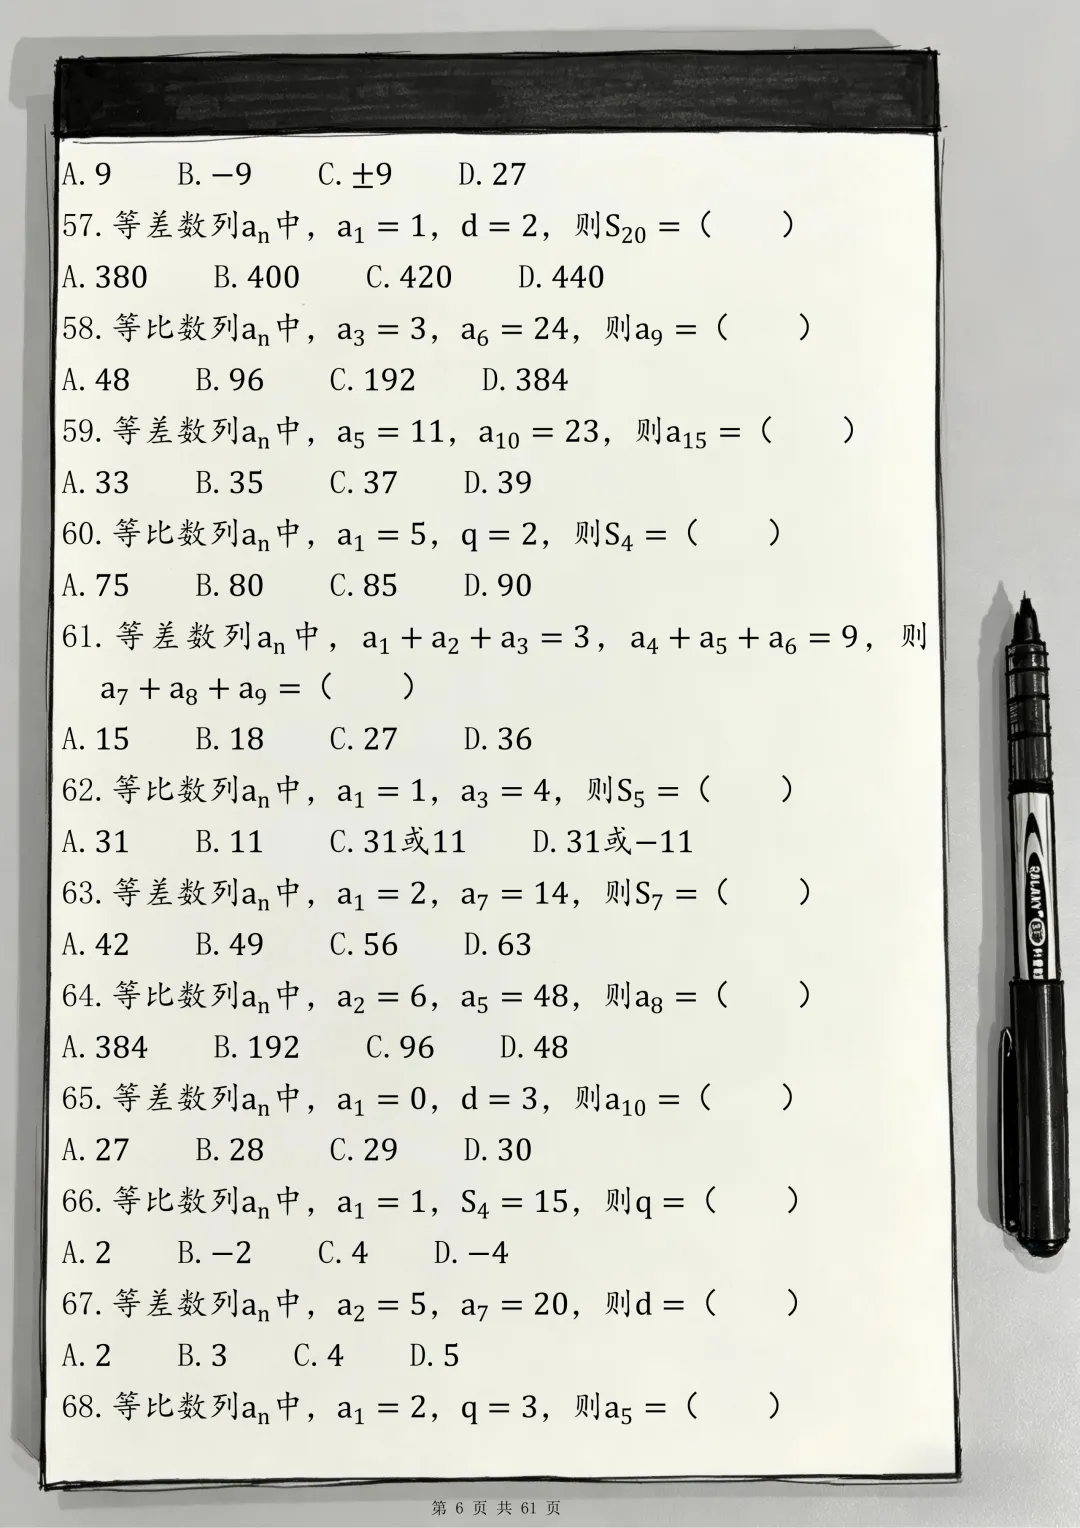 A. 9 B. −9 C. ±9 D. 27
57. 等差数列aₙ中，a₁ = 1，d = 2，则S₂₀ =（ ）
A. 380 B. 400 C. 420 D. 440
58. 等比数列aₙ中，a₃ = 3，a₆ = 24，则a₉ =（ ）
A. 48 B. 96 C. 192 D. 384
59. 等差数列aₙ中，a₅ = 11，a₁₀ = 23，则a₁₅ =（ ）
A. 33 B. 35 C. 37 D. 39
60. 等比数列aₙ中，a₁ = 5，q = 2，则S₄ =（ ）
A. 75 B. 80 C. 85 D. 90
61. 等差数列aₙ中，a₁ + a₂ + a₃ = 3，a₄ + a₅ + a₆ = 9，则
a₇ + a₈ + a₉ =（ ）
A. 15 B. 18 C. 27 D. 36
62. 等比数列aₙ中，a₁ = 1，a₃ = 4，则S₅ =（ ）
A. 31 B. 11 C. 31或11 D. 31或−11
63. 等差数列aₙ中，a₁ = 2，a₇ = 14，则S₇ =（ ）
A. 42 B. 49 C. 56 D. 63
64. 等比数列aₙ中，a₂ = 6，a₅ = 48，则a₈ =（ ）
A. 384 B. 192 C. 96 D. 48
65. 等差数列aₙ中，a₁ = 0，d = 3，则a₁₀ =（ ）
A. 27 B. 28 C. 29 D. 30
66. 等比数列aₙ中，a₁ = 1，S₄ = 15，则q =（ ）
A. 2 B. −2 C. 4 D. −4
67. 等差数列aₙ中，a₂ = 5，a₇ = 20，则d =（ ）
A. 2 B. 3 C. 4 D. 5
68. 等比数列aₙ中，a₁ = 2，q = 3，则a₅ =（ ）
第 6 页 共 61 页